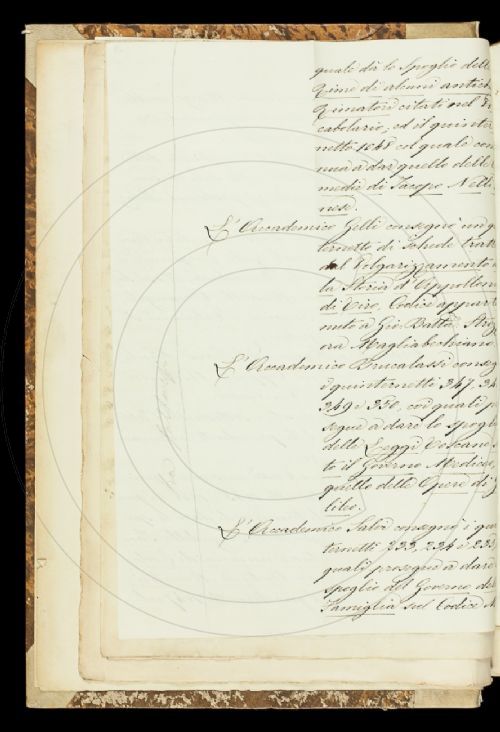 quale dà lo Spoglio delle
Rime di alcuni antich
Rimatori citati nel Vo
cabolario; ed il quinter
netto 1048 col quale con
nua a dar quello delle
medie di Jacopo Nelli
nese.
L'Accademico Gelli consegnò un q
ternetto di Schede tratt
dal Volgarizzamento
la Storia d'Appollon
di Tiro, Codice appart
nuto a Gio. Batta. Stroz
ora Magliabechiano.
L'Accademico Brucalassi conseg
i quinternetti 347, 34
349 e 350, coi quali p
segue a dare lo spogli
delle Leggi Toscane s
to il Governo Mediceo,
quello delle Opere di G
lileo.
L'Accademico Salvi consegnò i qui
ternetti 233, 234 e 235
quali prosegue a dare
spoglio del Governo del
Famiglia sul Codice